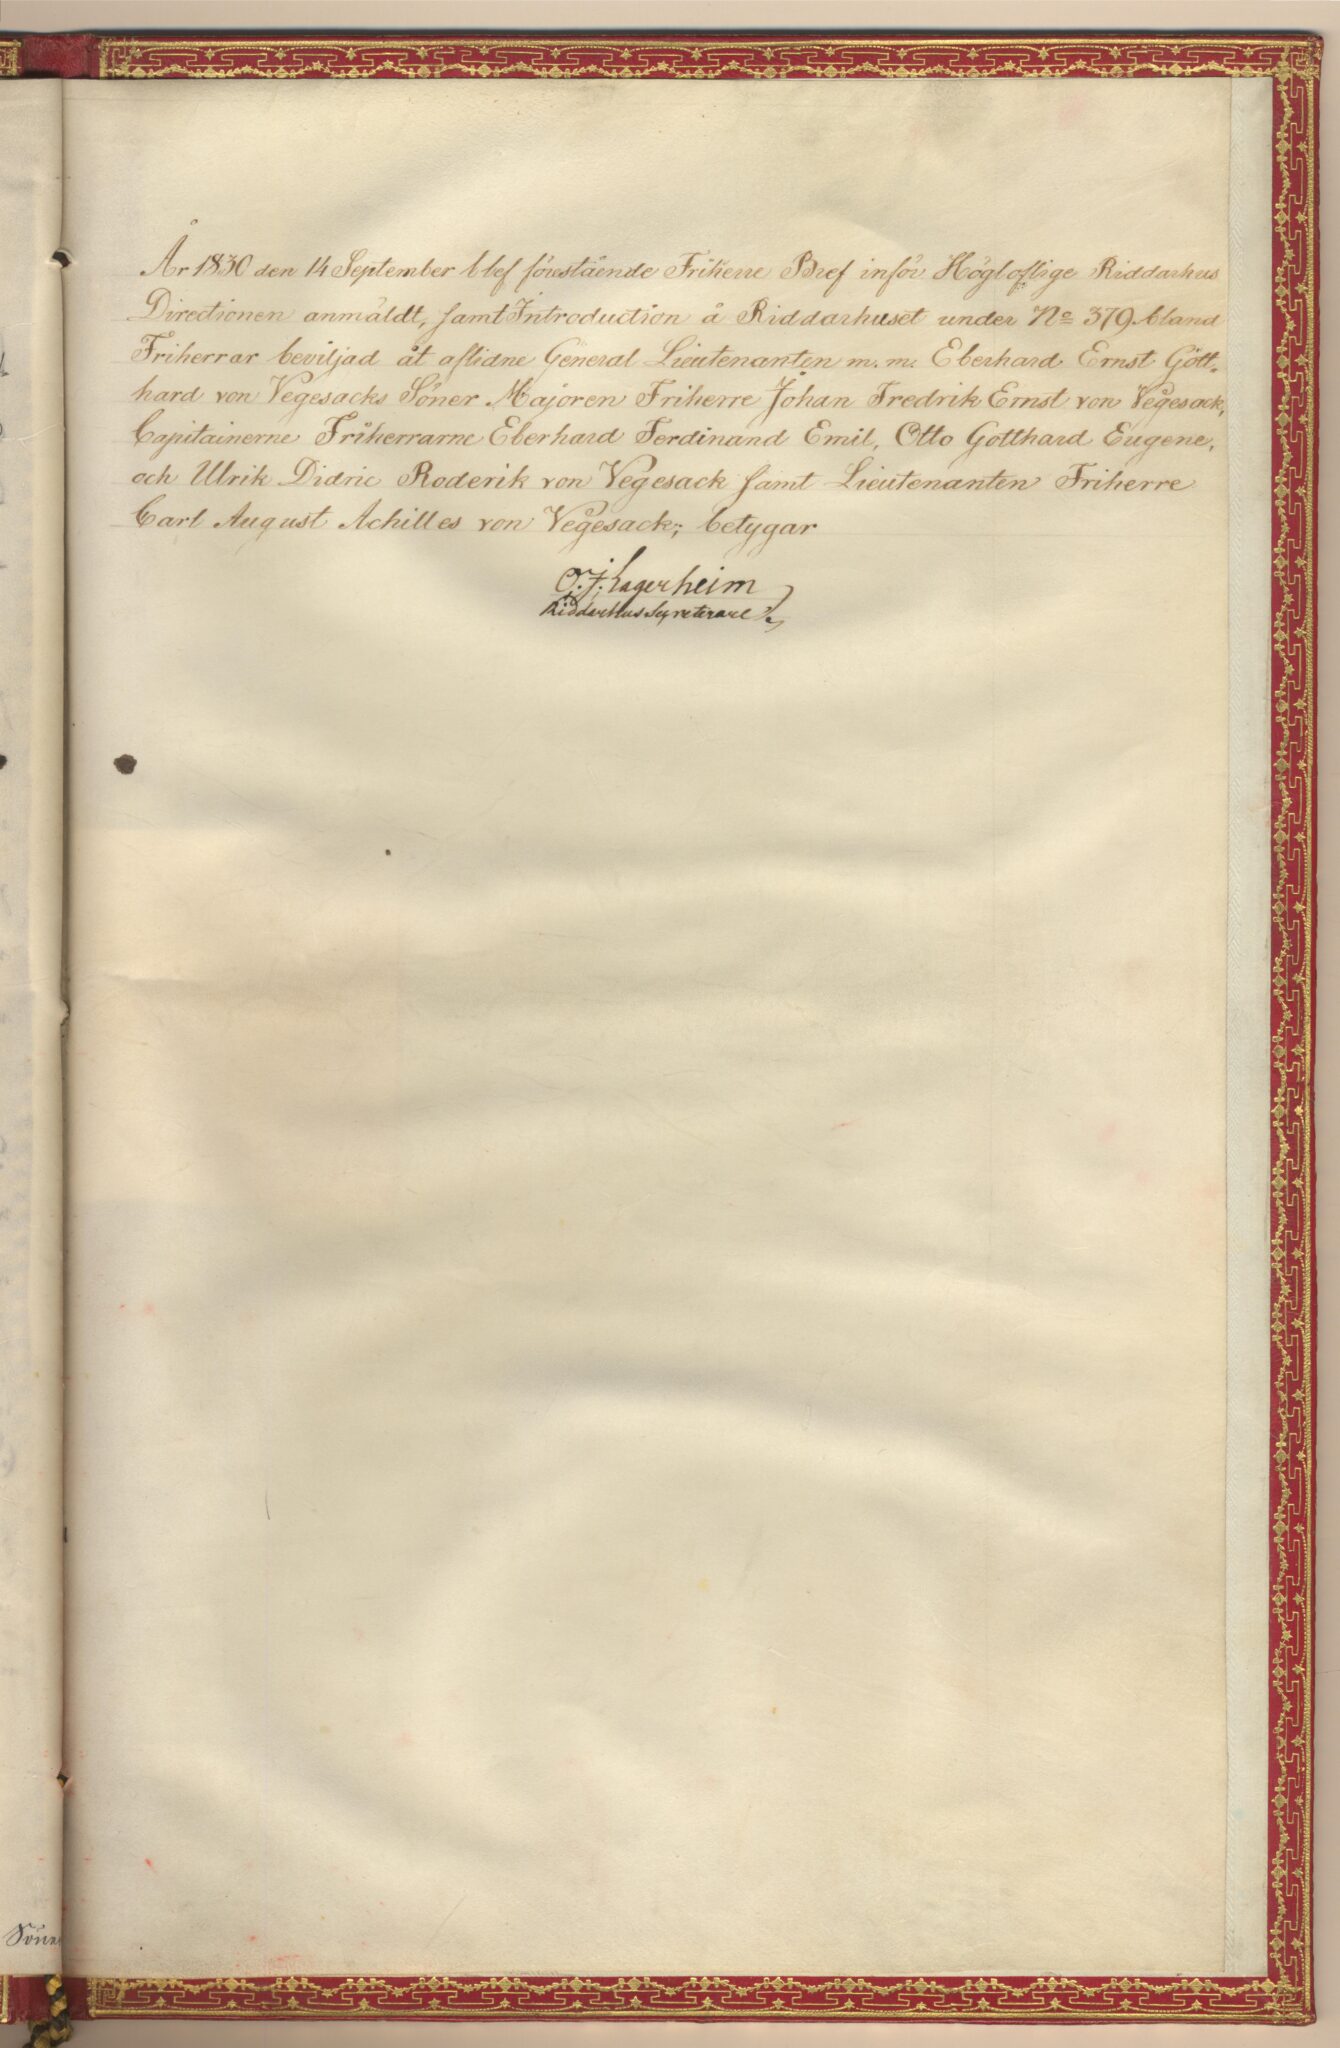 År 1830 den 14 September blef förestående Friherre Bref inför Höglofliga Riddarhus
Directionen anmäldt, samt Introduction å Riddarhuset under No 379 bland
Friherrar beviljad åt aflidne General Lieutenanten m. m. Eberhard Ernst Gött-
hard von Vegesacks Söner Majoren Friherre Johan Fredrik Ernst von Vegesack,
Capitainerne Friherrarne Eberhard Ferdinand Emil, Otto Gotthard Eugene,
och Ulrik Didric Roderik von Vegesack samt Lieutenanten Friherre
Carl August Achilles von Vegesack; betygar
O. J. Lagerheim
RiddarHus Secreterare
Söner